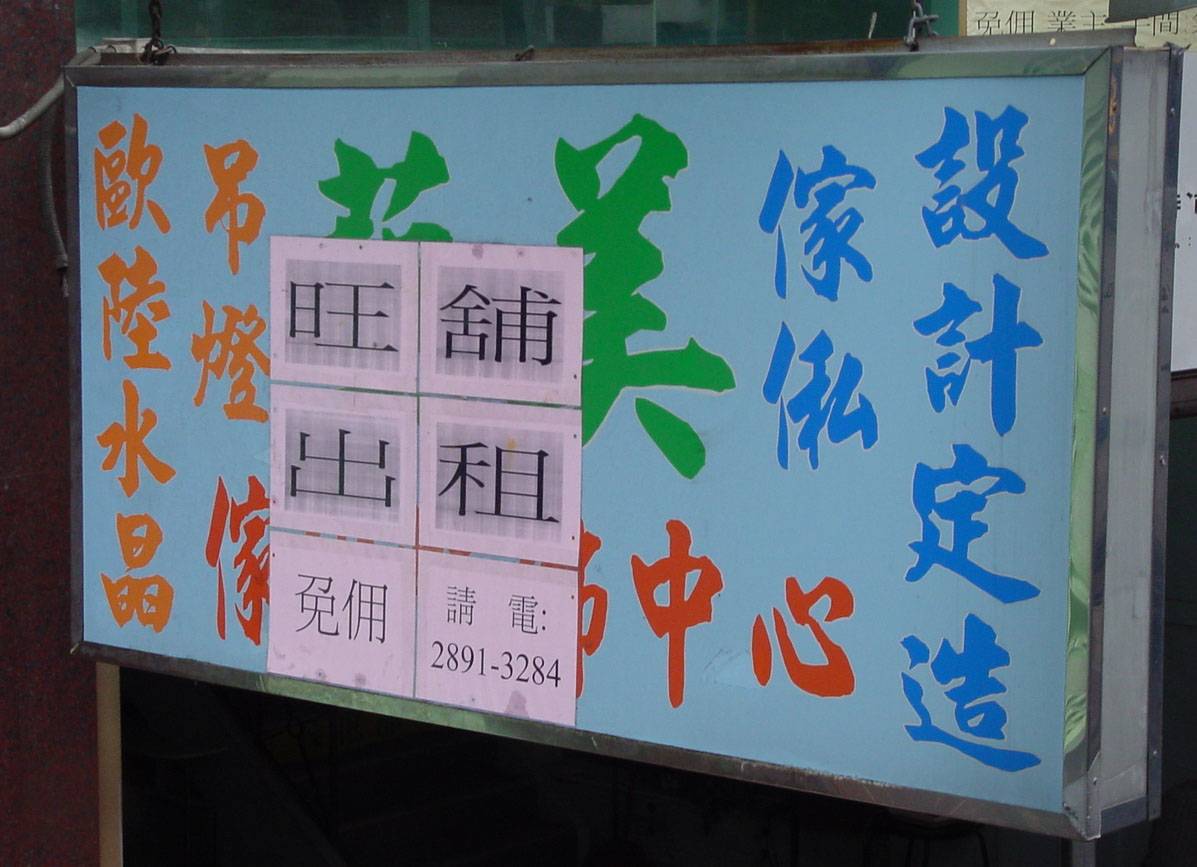 歐陸水晶
吊燈
美
傢俬
設計定造
傢
中心
旺舖
出租
免佣
請 電:
2891-3284
免佣 業主